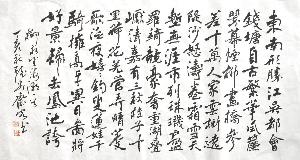 東南形勝江吳都會
錢塘自古繁華風簾
翠幕煙柳畫橋參
差十萬人家雲樹繞
堤沙怒濤卷霜雪天
塹無涯市列珠璣戶盈
羅綺競豪奢重湖疊
巘清嘉有三秋桂子十
里荷花羌管弄晴菱
歌泛夜嬉嬉釣叟蓮娃千
騎擁高牙異日圖將
好景歸去鳳池誇
柳永望海潮
丁亥秋